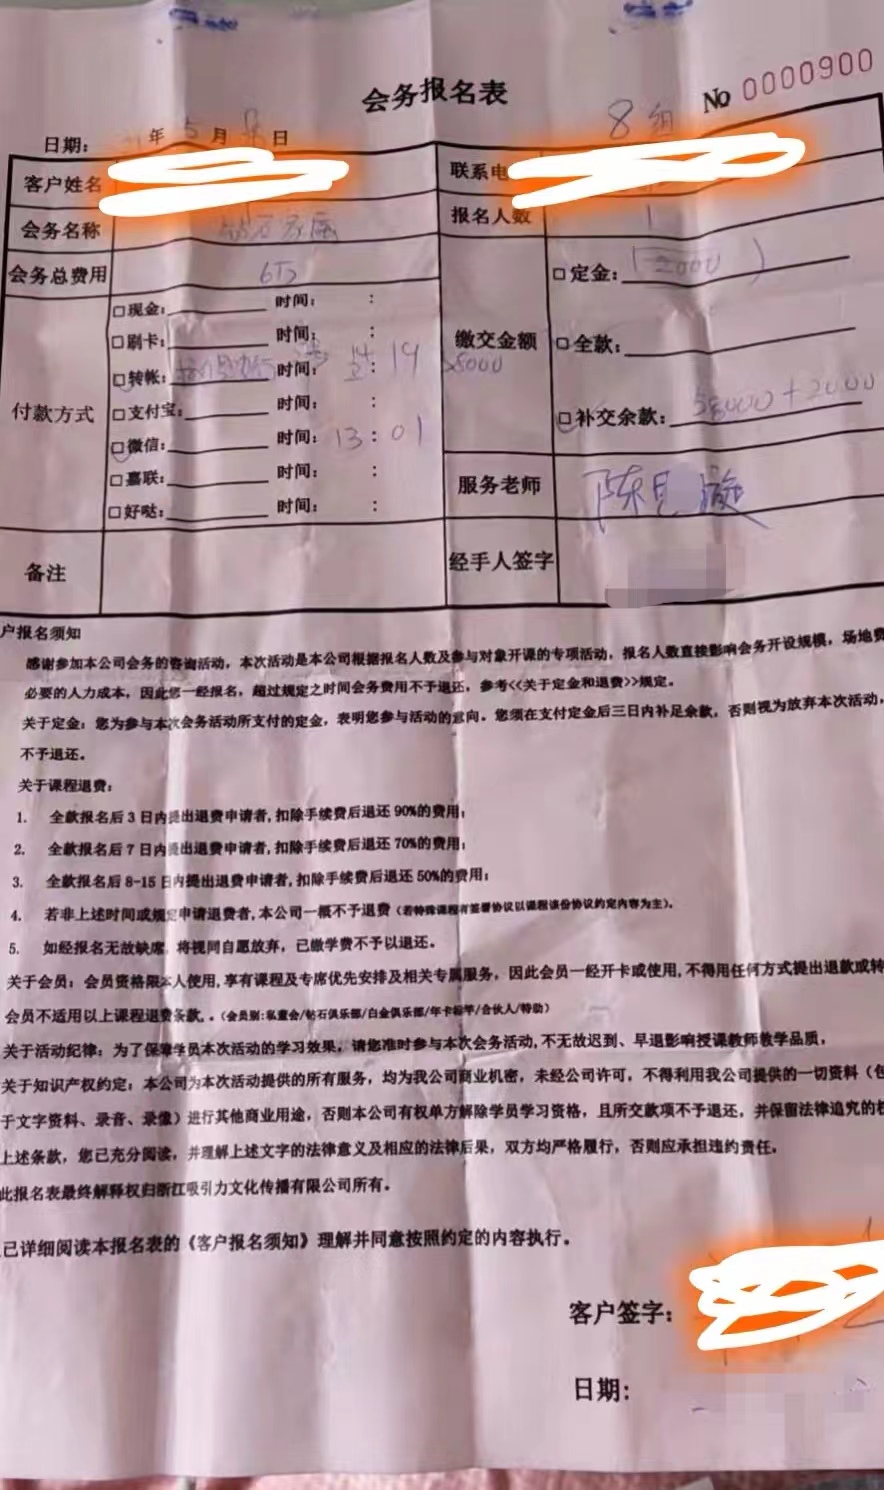 会务报名表
No 0000900
8组
日期: 年 5月 日
客户姓名
联系电
会务名称
报名人数 1
会务总费用 6万
付款方式
□现金: 时间: :
□刷卡: 时间: :
□转帐: 时间: 14:19
□支付宝: 时间: :
□微信: 时间: 13:01
□嘉联: 时间: :
□好哒: 时间: :
缴交金额
□定金: (2000)
□全款:
□补交余款: 58000+2000
服务老师 陈見漩
备注
经手人签字
户报名须知
感谢参加本公司会务的咨询活动，本次活动是本公司根据报名人数及参与对象开课的专项活动，报名人数直接影响会务开设规模，场地费
必要的人力成本，因此您一经报名，超过规定之时间会务费用不予退还，参考<<关于定金和退费>>规定。
关于定金：您为参与本次会务活动所支付的定金，表明您参与活动的意向。您须在支付定金后三日内补足余款，否则视为放弃本次活动，
不予退还。
关于课程退费：
1. 全款报名后3日内提出退费申请者,扣除手续费后退还90%的费用；
2. 全款报名后7日内提出退费申请者,扣除手续费后退还70%的费用；
3. 全款报名后8-15日内提出退费申请者,扣除手续费后退还50%的费用；
4. 若非上述时间或规定申请退费者,本公司一概不予退费（若特殊课程有签署协议以课程该份协议约定内容为主）。
5. 如经报名无故缺席，将视同自愿放弃，已缴学费不予以退还。
关于会员：会员资格限本人使用,享有课程及专席优先安排及相关专属服务，因此会员一经开卡或使用,不得用任何方式提出退款或转
会员不适用以上课程退费条款。。（会员别:私董会/钻石俱乐部/白金俱乐部/年卡标竿/合伙人/特助）
关于活动纪律：为了保障学员本次活动的学习效果，请您准时参与本次会务活动,不无故迟到、早退影响授课教师教学品质，
关于知识产权约定：本公司为本次活动提供的所有服务，均为我公司商业机密，未经公司许可，不得利用我公司提供的一切资料（包
于文字资料、录音、录像）进行其他商业用途，否则本公司有权单方解除学员学习资格，且所交款项不予退还，并保留法律追究的权
上述条款，您已充分阅读，并理解上述文字的法律意义及相应的法律后果，双方均严格履行，否则应承担违约责任。
此报名表最终解释权归浙江吸引力文化传播有限公司所有。
已详细阅读本报名表的《客户报名须知》理解并同意按照约定的内容执行。
客户签字：
日期：